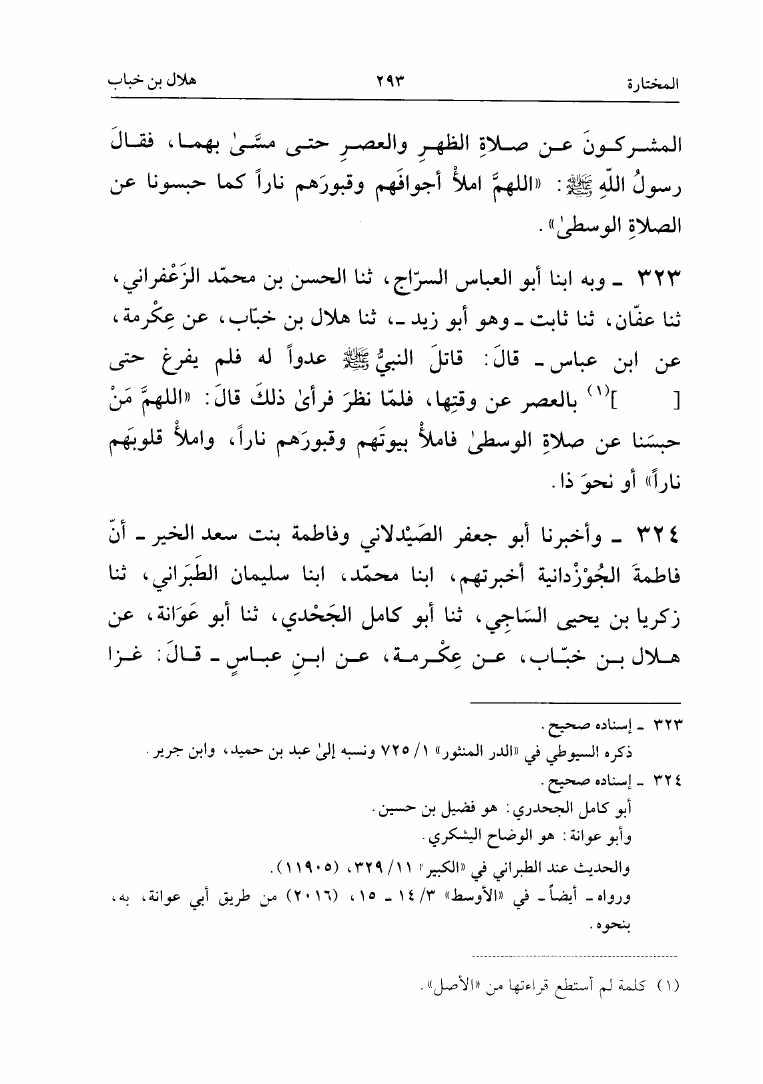 المختارة ٢٩٣ هلال بن خباب
المشـركـونَ عـن صـلاةِ الظهـرِ والعصـرِ حتـى مسَّـىٰ بهمـا، فقـالَ
رسولُ اللّهِ ﷺ: «اللهمَّ املأْ أجوافَهم وقبورَهم ناراً كما حبسونا عن
الصلاةِ الوسطىٰ».
٣٢٣ ـ وبه ابنا أبو العباس السرّاج، ثنا الحسن بن محمّد الزَعْفراني،
ثنا عفّان، ثنا ثابت ـ وهو أبو زيد ـ، ثنا هلال بن خبّاب، عن عِكْرمة،
عن ابن عباس ـ قالَ: قاتلَ النبيُّ ﷺ عدواً له فلم يفرغ حتى
[ ](١) بالعصر عن وقتِها، فلمّا نظرَ فرأىٰ ذلكَ قالَ: «اللهمَّ مَنْ
حبسَنا عن صلاةِ الوسطىٰ فاملأْ بيوتَهم وقبورَهم ناراً، واملأْ قلوبَهم
ناراً» أو نحوَ ذا.
٣٢٤ ـ وأخبرنا أبو جعفر الصَيْدلاني وفاطمة بنت سعد الخير ـ أنّ
فاطمةَ الجُوْزْدانية أخبرتهم، ابنا محمّد، ابنا سليمان الطَبَراني، ثنا
زكريا بن يحيى السَاجِي، ثنا أبو كامل الجَحْدي، ثنا أبو عَوَانة، عن
هـلال بـن خبّـاب، عـن عِكْـرمـة، عـن ابـنِ عبـاسٍ ـ قـالَ: غـزا
٣٢٣ ـ إسناده صحيح.
ذكره السيوطي في «الدر المنثور» ١/ ٧٢٥ ونسبه إلىٰ عبد بن حميد، وابن جرير.
٣٢٤ ـ إسناده صحيح.
أبو كامل الجحدري: هو فضيل بن حسين.
وأبو عوانة: هو الوضاح اليشكري.
والحديث عند الطبراني في «الكبير» ١١/ ٣٢٩، (١١٩٠٥).
ورواه ـ أيضاً ـ في «الأوسط» ٣/ ١٤ ـ ١٥، (٢٠١٦) من طريق أبي عوانة، به،
بنحوه.
(١) كلمة لم أستطع قراءتها من «الأصل».